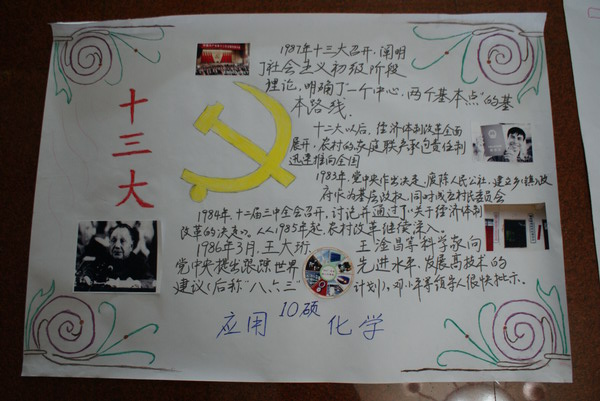 十三大
1987年十三大召开,阐明
了社会主义初级阶段
理论,明确了“一个中心,两个基本点”的基
本路线.
十二大以后,经济体制改革全面
展开,农村的家庭联产承包责任制
迅速推向全国
1983年,党中央作出决定,废除人民公社,建立乡(镇)政
府作为基层政权,同时成立村民委员会
1984年,十二届三中全会召开,讨论并通过了《关于经济体制
改革的决定》。从1985年起,农村改革继续深入。
1986年3月,王大珩 王淦昌等科学家向
党中央提出跟踪世界 先进水平,发展高技术的
建议(后称“八六三 计划),邓小平等领导人很快批示。
10硕
应用 化学